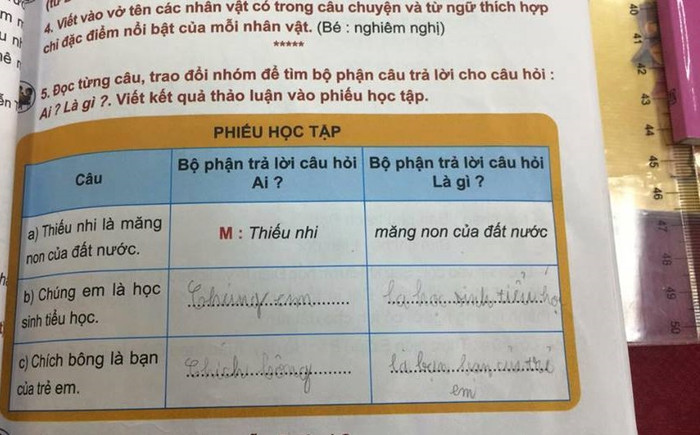 4. Viết vào vở tên các nhân vật có trong câu chuyện và từ ngữ thích hợp
chỉ đặc điểm nổi bật của mỗi nhân vật. (Bé : nghiêm nghị)
*****
5. Đọc từng câu, trao đổi nhóm để tìm bộ phận câu trả lời cho câu hỏi :
Ai ? Là gì ?. Viết kết quả thảo luận vào phiếu học tập.
PHIẾU HỌC TẬP
Câu
Bộ phận trả lời câu hỏi
Ai ?
Bộ phận trả lời câu hỏi
Là gì ?
a) Thiếu nhi là măng
non của đất nước.
M : Thiếu nhi
măng non của đất nước
b) Chúng em là học
sinh tiểu học.
Chúng em
là học sinh tiểu học
c) Chích bông là bạn
của trẻ em.
Chích bông
là bạn của trẻ
em
40
41
42
43
44
45
46
47
48
49
50